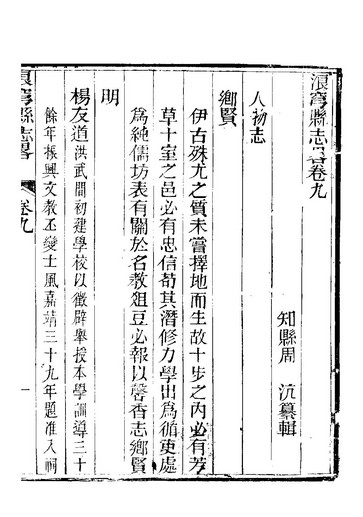 浪穹縣志畧卷九
知縣周沆纂輯
人物志
鄉賢
伊古殊尤之質未嘗擇地而生故十步之內必有芳
草十室之邑必有忠信苟其潛修力學出爲循吏處
爲純儒坊表有關於名教俎豆必報以馨香志鄉賢
明
楊友道洪武間初建學校以徵辟舉授本學訓導三十
餘年振興文教丕變士風嘉靖三十九年題准入祠
浪穹縣志畧 卷九 一